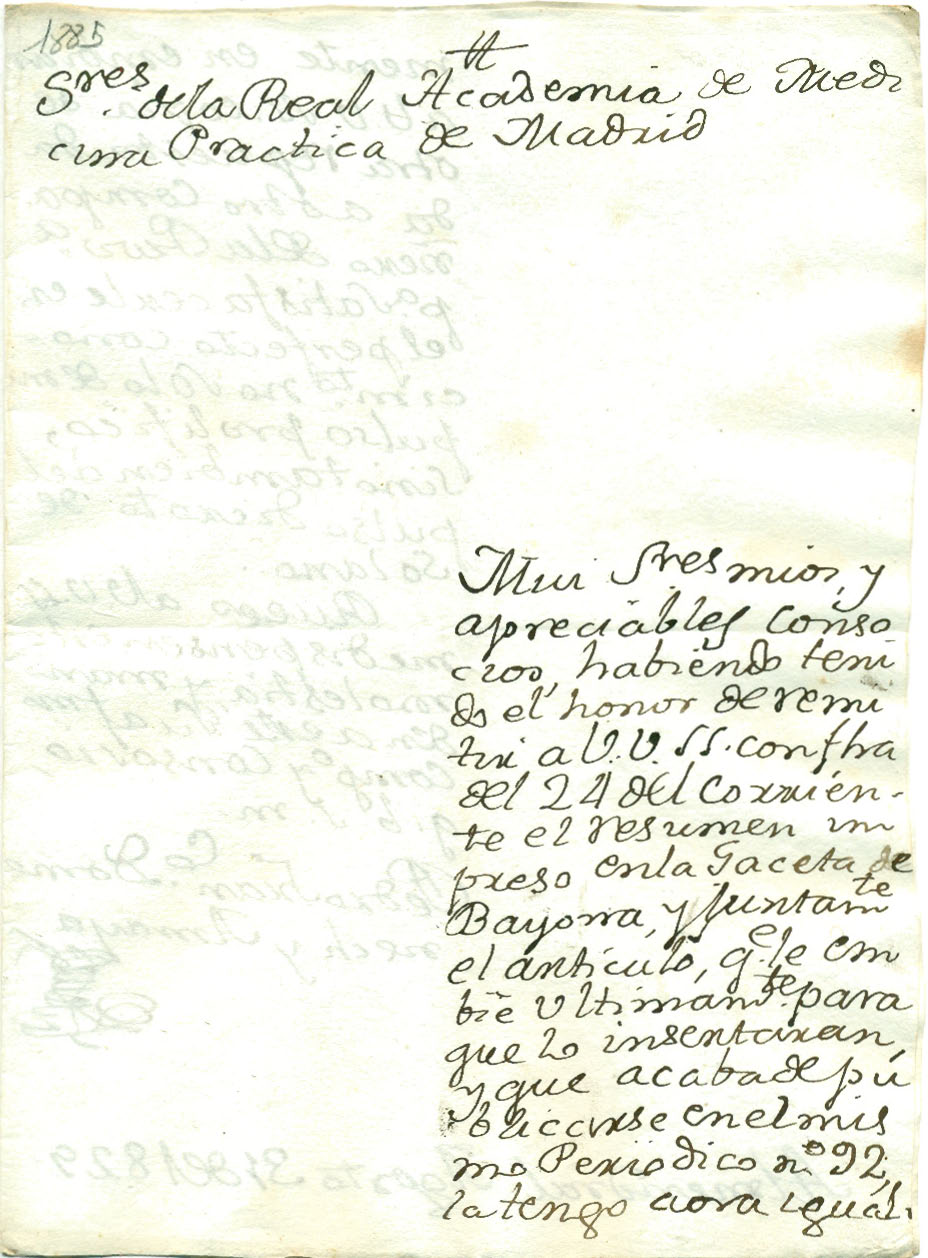 1885
Sres. dela Real Academia de Medi
cina Practica de Madrid
Mui Sres mios, y
apreciables conso
cios, habiendo teni
do el honor de remi
tir a V.V. SS. con fha
del 24 del corrien-
te el resumen im
preso en la Gaceta de
Bayona, y Juntamte
el articulo, qe. le em
bié ultimamte. para
que lo insertaran,
y que acaba de pu
blicarse en el mis
mo Periodico nº 92,
la tengo aora igual.